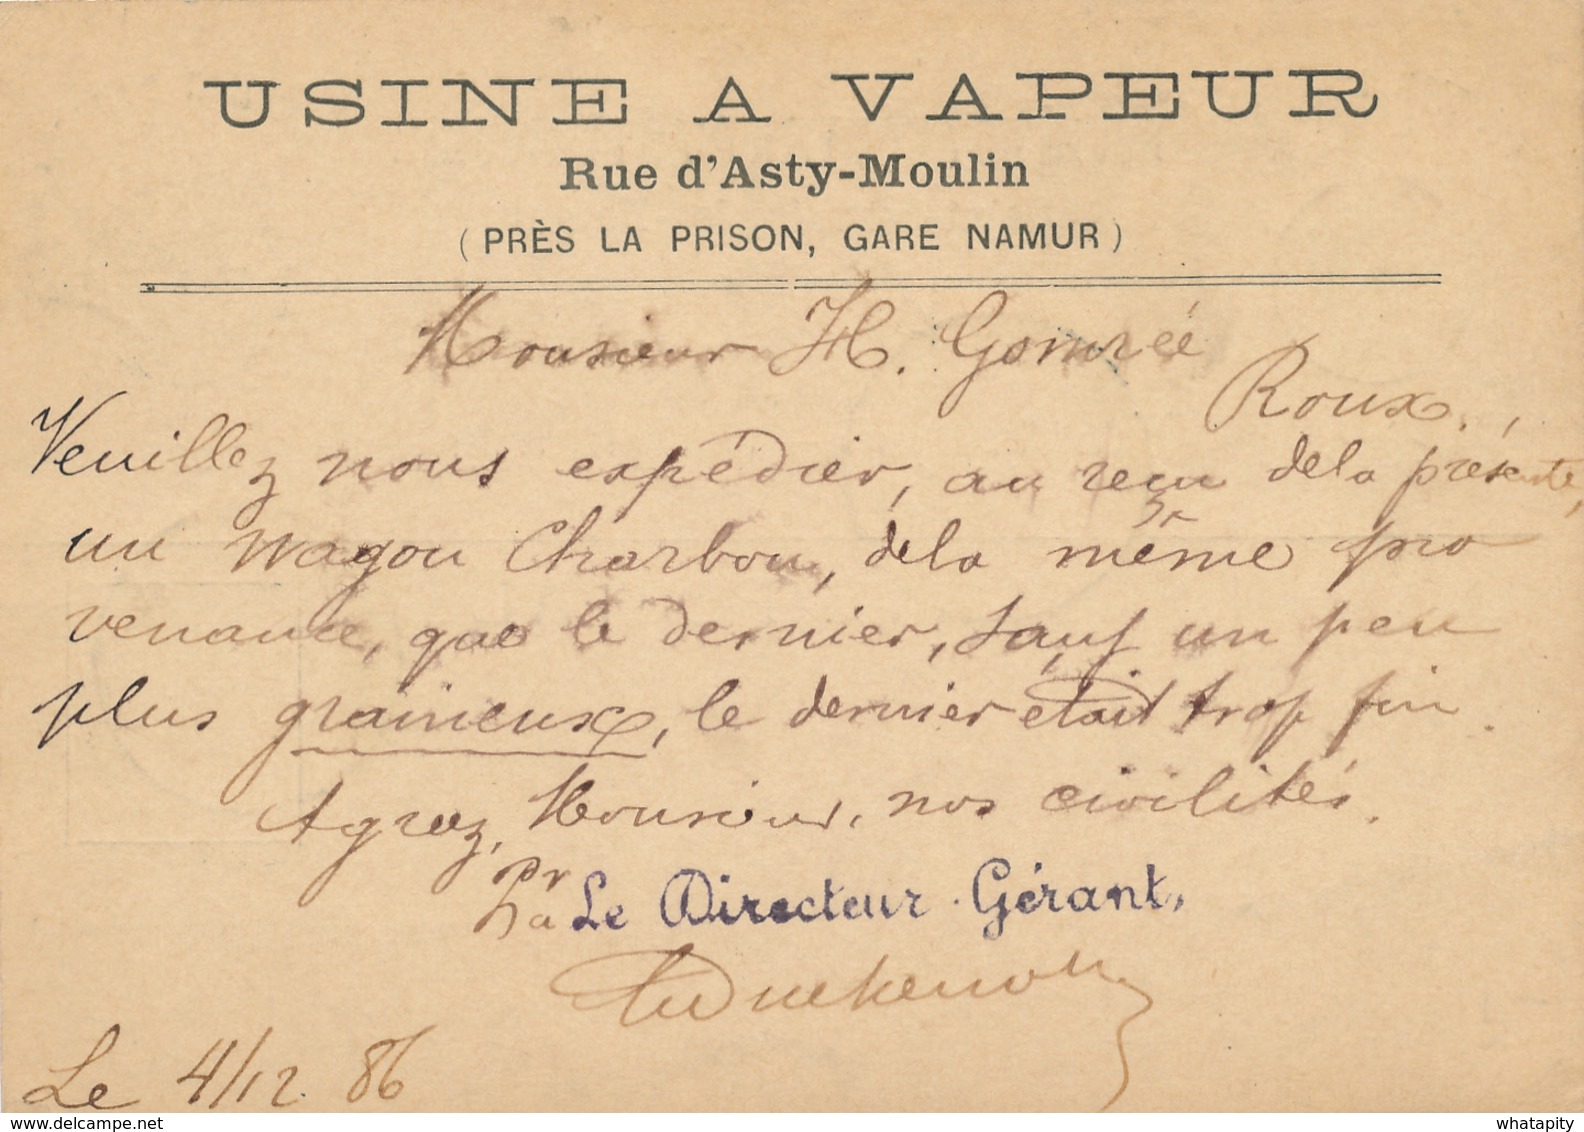 USINE A VAPEUR
Rue d'Asty-Moulin
(PRÈS LA PRISON, GARE NAMUR)
Monsieur H. Gomrée
Roux.,
Veuillez nous expédier, au reçu dela présente,
un wagon Charbon, dela même pro
venance, que le dernier, sauf un peu
plus graineux, le dernier était trop fin.
Agréez, Monsieur, nos civilités.
pr
Le Directeur-Gérant,
Le 4/12 86
whatapity